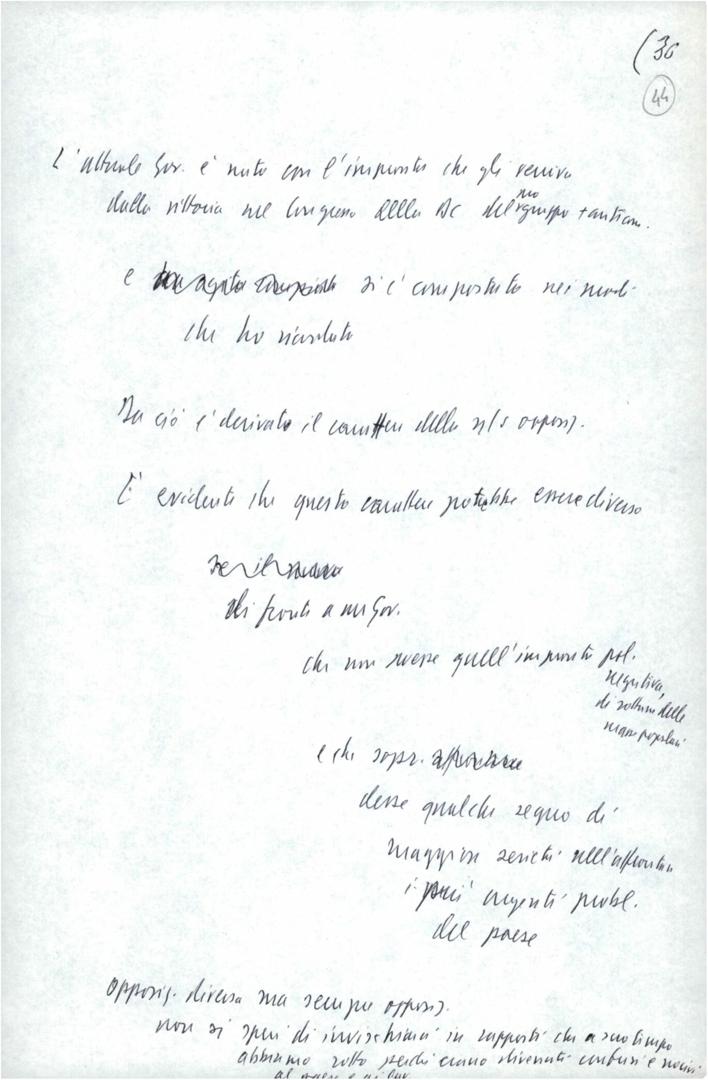 (30
44
L'attuale Gov. è nato con l'impronta che gli veniva
dalla vittoria nel Congresso della DC del gruppo + anticom.
e si è comportato nei modi
che ho ricordato
Da ciò è derivato il carattere della n/s opposiz.
È evidente che questo carattere potrebbe essere diverso
se il
di fronte a un Gov.
che non avesse quell'impronta pol.
negativa,
di rottura delle
masse popolari
e che sopr.
desse qualche segno di
maggiore serietà nell'affrontare
i più urgenti probl.
del paese
Opposiz. diversa ma sempre opposiz.
non si speri di invischiarci in rapporti che a suo tempo
abbiamo rotto perché erano divenuti confusi e nocivi
al paese e ai lav.